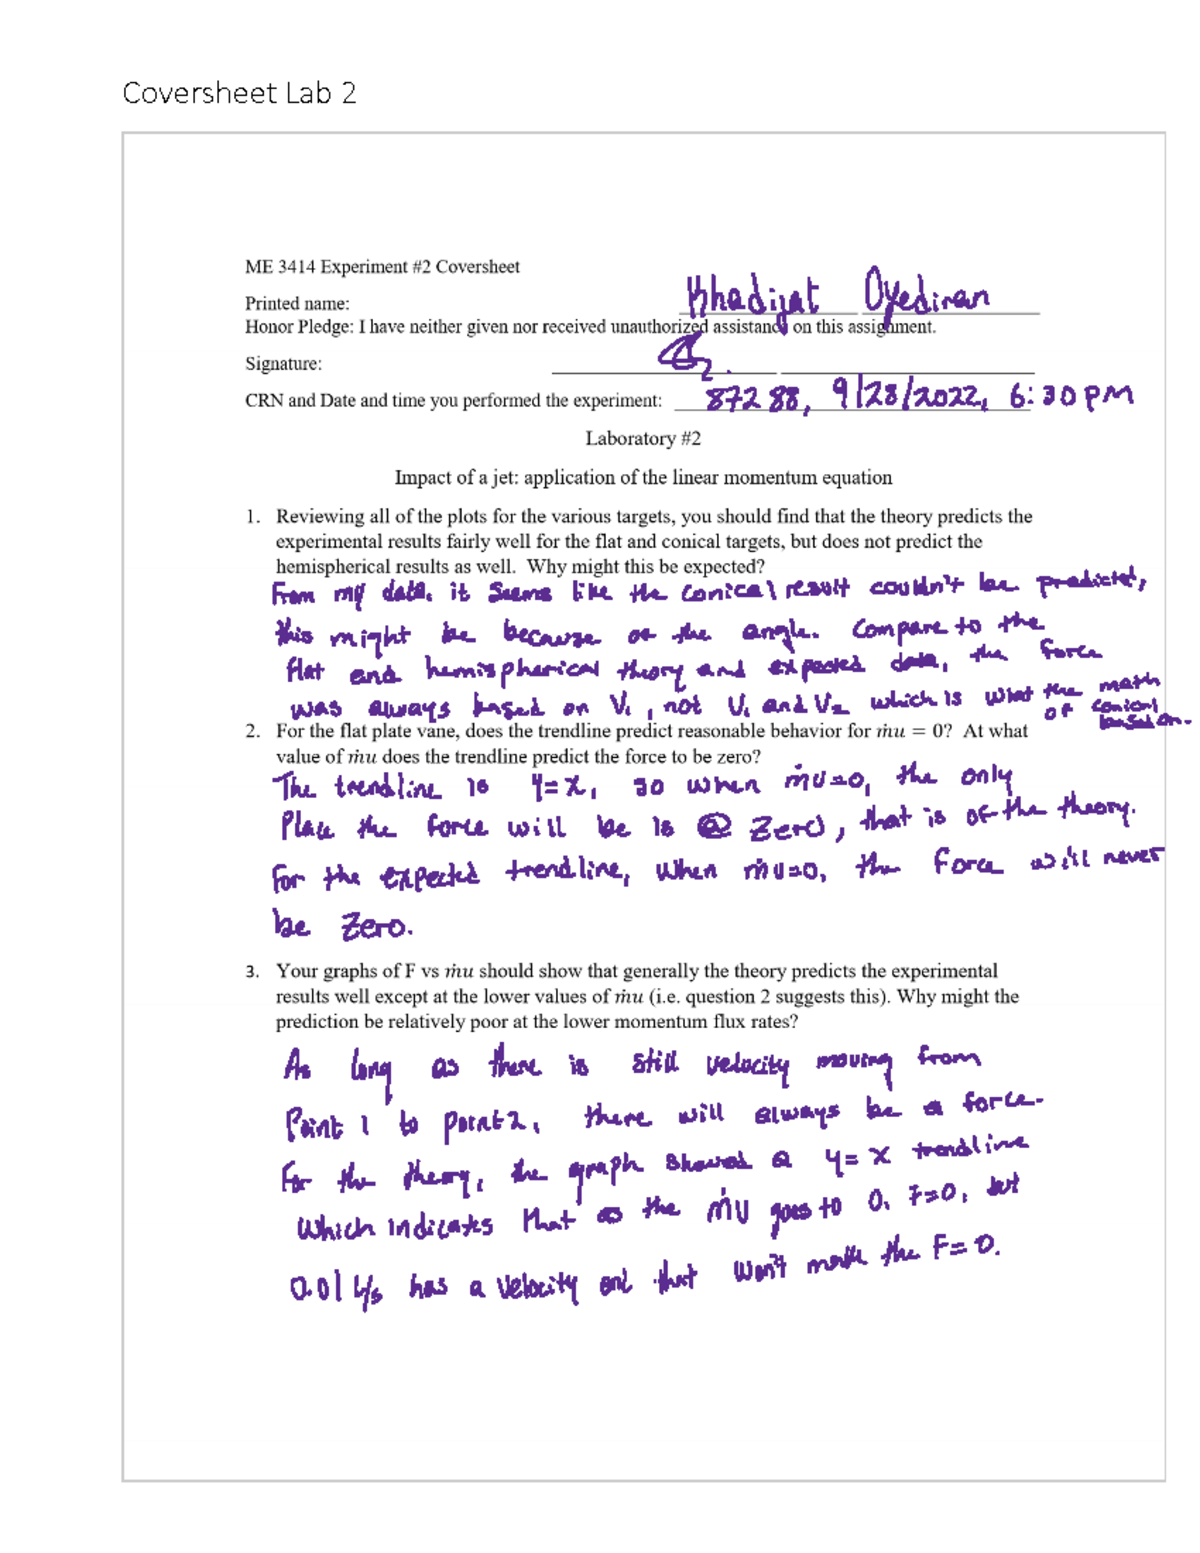 Coversheet Lab 2
ME 3414 Experiment #2 Coversheet
Printed name: Khadijat Oyediran
Honor Pledge: I have neither given nor received unauthorized assistance on this assignment.
Signature:
CRN and Date and time you performed the experiment: 87288, 9/28/2022, 6:30 PM
Laboratory #2
Impact of a jet: application of the linear momentum equation
1. Reviewing all of the plots for the various targets, you should find that the theory predicts the
experimental results fairly well for the flat and conical targets, but does not predict the
hemispherical results as well. Why might this be expected?
From my data, it seems like the conical result couldn't be predicted,
this might be because of the angle. Compare to the
flat and hemispherical theory and expected data, the force
was always based on V₁, not V₁ and V₂ which is what the math
of conical
based on.
2. For the flat plate vane, does the trendline predict reasonable behavior for ṁu = 0? At what
value of ṁu does the trendline predict the force to be zero?
The trendline is y=x, so when ṁu=0, the only
Place the force will be is @ zero, that is of the theory.
For the expected trendline, when ṁu=0, the force will never
be zero.
3. Your graphs of F vs ṁu should show that generally the theory predicts the experimental
results well except at the lower values of ṁu (i.e. question 2 suggests this). Why might the
prediction be relatively poor at the lower momentum flux rates?
As long as there is still velocity moving from
Point 1 to point 2, there will always be a force.
For the theory, the graph showed a y=x trendline
which indicates that as the ṁu goes to 0, F=0, but
0.01 L/s has a velocity and that won't make the F=0.